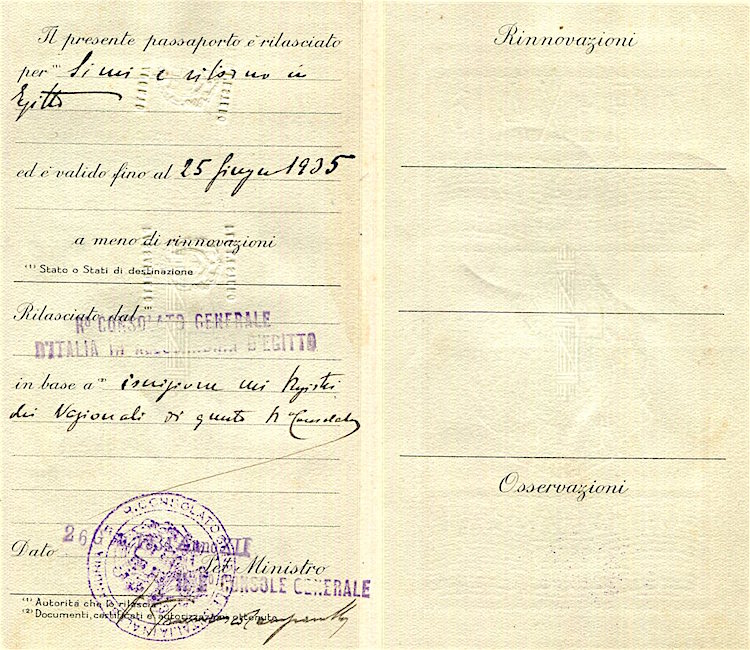 Il presente passaporto è rilasciato
per (1) Simi e ritorno in
Egitto
ed è valido fino al 25 Giugno 1935
a meno di rinnovazioni
(1) Stato o Stati di destinazione
Rilasciato dal (1)
Ro CONSOLATO GENERALE
D'ITALIA IN ALESSANDRIA D'EGITTO
in base a (2) iscrizione nei Registri
dei Nazionali di questo R Consolato
R. CONSOLATO
26 G
Dato
Del Ministro
CONSOLE GENERALE
(1) Autorità che lo rilascia
(2) Documenti, certificati e autorizzazione ottenute
Rinnovazioni
Osservazioni